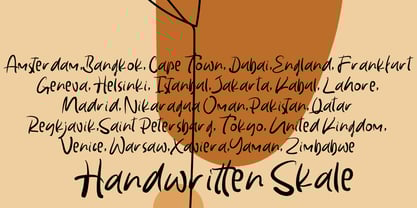 Amsterdam,Bangkok, Cape Town, Dubai,England, Frankfurt
Geneva, Helsinki, Istanbul,Jakarta, Kabul, Lahore,
Madrid, Nikaragua Oman,Pakistan, Qatar
Reykjavik,Saint Petersburg, Tokyo, United Kingdom,
Venice, Warsaw,Xaviera,Yaman, Zimbabwe
Handwritten Skale